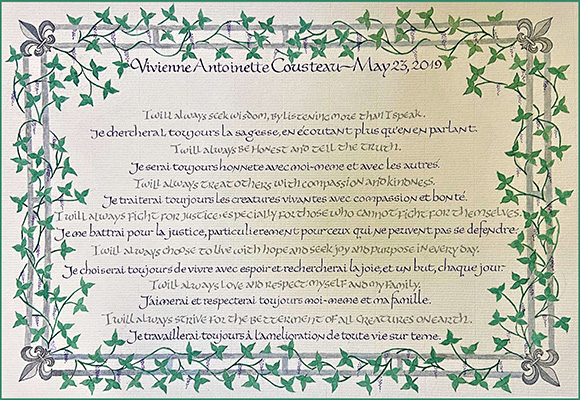 Vivienne Antoinette Cousteau~May 23, 2019
I will always seek wisdom, by listening more than I speak.
Je chercherai, toujours la sagesse, en écoutant plus qu'en en parlant.
I will always be honest and tell the truth.
Je serai toujours honnete avec moi-meme et avec les autres.
I will always treat others with compassion and kindness.
Je traiterai toujours les creatures vivantes avec compassion et bonté.
I will always fight for justice especially for those who cannot fight for themselves.
Je me battrai pour la justice, particulierement pour ceux qui ne peuvent pas se defendre.
I will always choose to live with hope and seek joy and purpose in every day.
Je choiserai toujours de vivre avec espoir et rechercherai la joie, et un but, chaque jour.
I will always love and respect myself and my family.
J'aimerai et respecterai toujours moi-meme et ma famille.
I will always strive for the betterment of all creatures on earth.
Je travaillerai toujours à l'amelioration de toute vie sur terre.